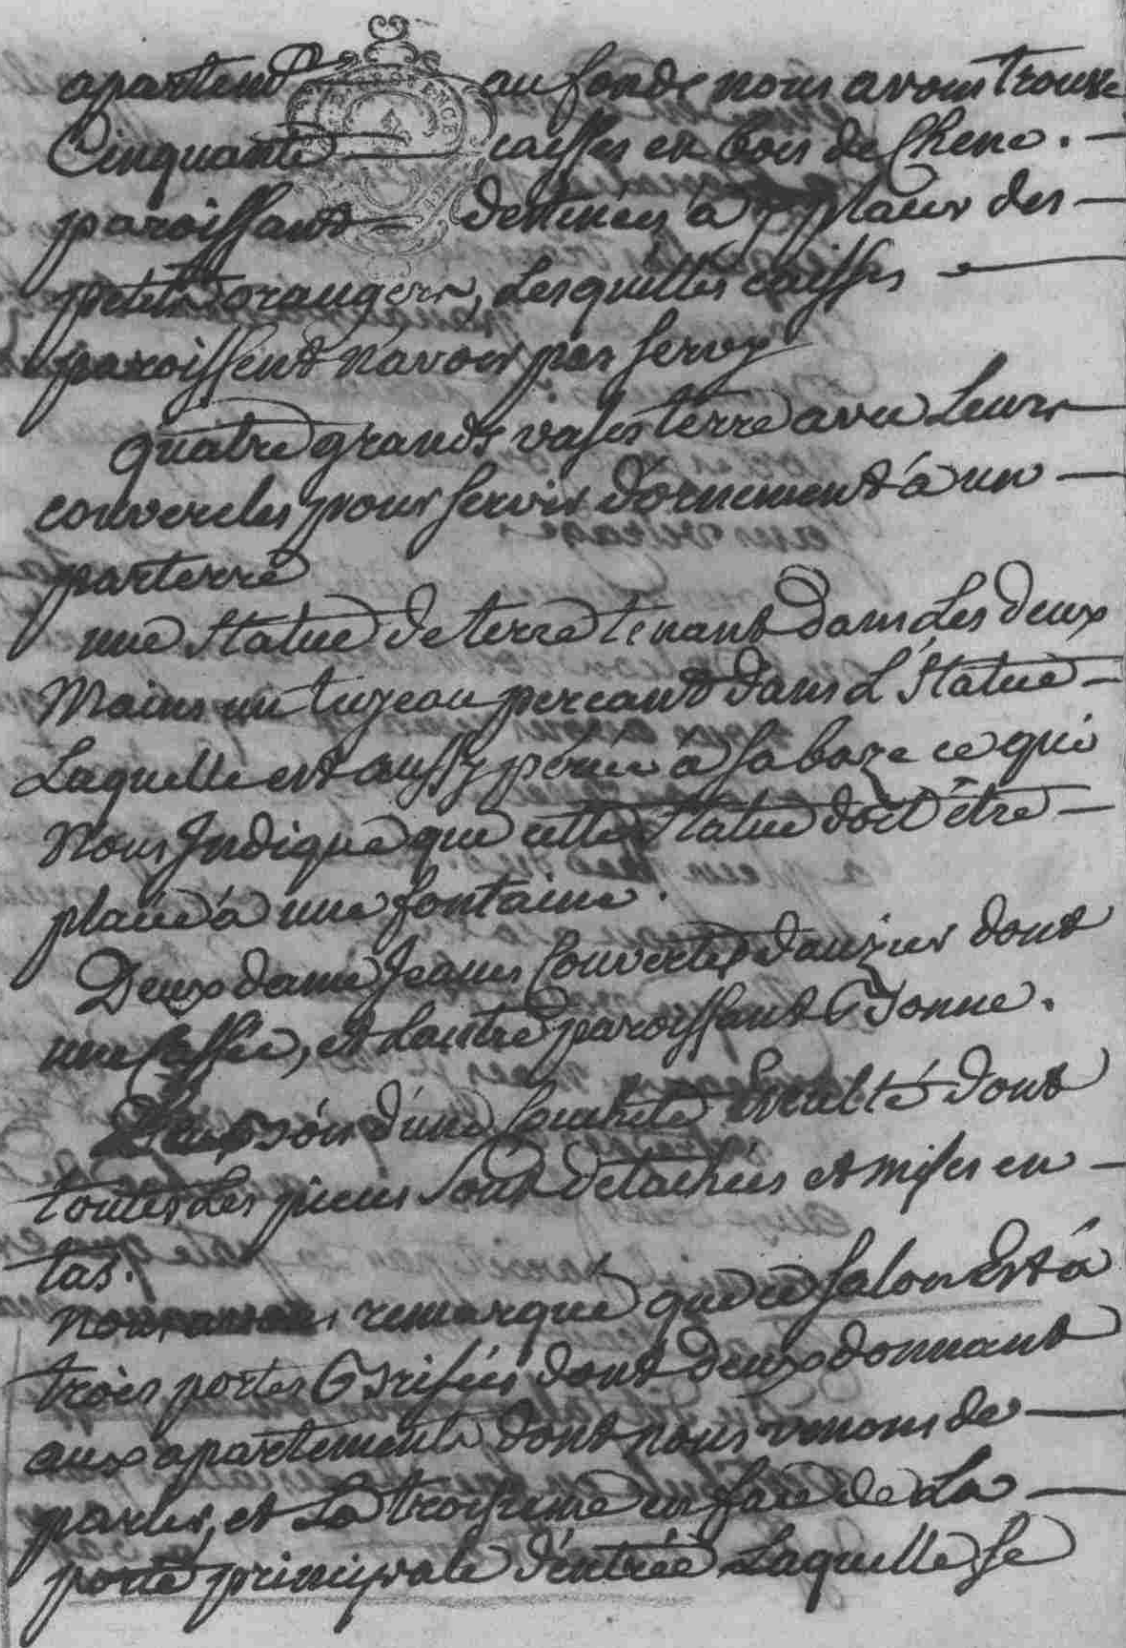 apartemt au fonds nous avons trouvé
Cinquante caisses en bois de Chene.
paroissant destinées à placer des
petits orangers, Lesquelles caisses
paroissent navoir pas servy
quatre grands vases terre avec Leurs
couvercles pour servir d'ornement à un
parterre
une statue de terre tenant dans Les deux
Mains un tuyeau percant dans L'statue
Laquelle est aussy percée à sa baze ce qui
Nous Indique que cette statue doit être
placée à une fontaine.
Deux dame Jeanes Couvertes d'auzier dont
une cassée, et Lautre paroissant Bonne.
d'une dont
toutes Les pieces sont detachées et mises en
tas.
nous avons remarqué que ce salon Est à
trois portes Brisées dont deux donnant
aux apartements dont nous venons de
parler, et La troisieme en face de La
porte principale d'entrée Laquelle se